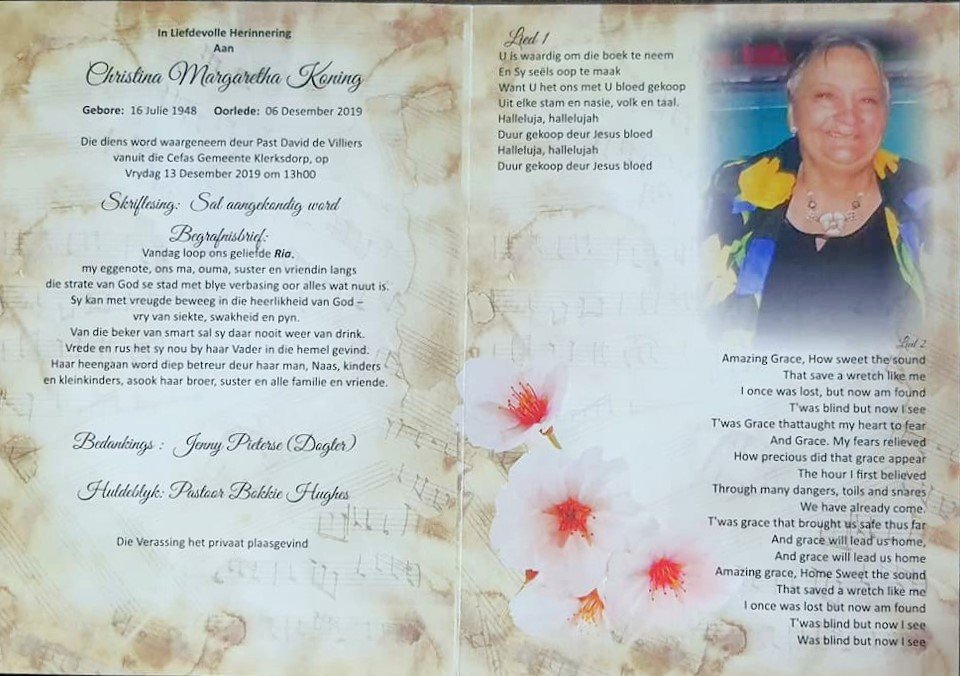 In Liefdevolle Herinnering
Aan
Christina Margaretha Koning
Gebore: 16 Julie 1948 Oorlede: 06 Desember 2019
Die diens word waargeneem deur Past David de Villiers
vanuit die Cefas Gemeente Klerksdorp, op
Vrydag 13 Desember 2019 om 13h00
Skriflesing: Sal aangekondig word
Begrafnisbrief:
Vandag loop ons geliefde Ria,
my eggenote, ons ma, ouma, suster en vriendin langs
die strate van God se stad met blye verbasing oor alles wat nuut is.
Sy kan met vreugde beweeg in die heerlikheid van God –
vry van siekte, swakheid en pyn.
Van die beker van smart sal sy daar nooit weer van drink.
Vrede en rus het sy nou by haar Vader in die hemel gevind.
Haar heengaan word diep betreur deur haar man, Naas, kinders
en kleinkinders, asook haar broer, suster en alle familie en vriende.
Bedankings : Jenny Pieterse (Dogter)
Huldeblyk: Pastoor Bokkie Hughes
Die Verassing het privaat plaasgevind
Lied 1
U is waardig om die boek te neem
En Sy seëls oop te maak
Want U het ons met U bloed gekoop
Uit elke stam en nasie, volk en taal.
Halleluja, hallelujah
Duur gekoop deur Jesus bloed
Halleluja, hallelujah
Duur gekoop deur Jesus bloed
Lied 2
Amazing Grace, How sweet the sound
That save a wretch like me
I once was lost, but now am found
T'was blind but now I see
T'was Grace thattaught my heart to fear
And Grace. My fears relieved
How precious did that grace appear
The hour I first believed
Through many dangers, toils and snares
We have already come.
T'was grace that brought us safe thus far
And grace will lead us home,
And grace will lead us home
Amazing grace, Home Sweet the sound
That saved a wretch like me
I once was lost but now am found
T'was blind but now I see
Was blind but now I see